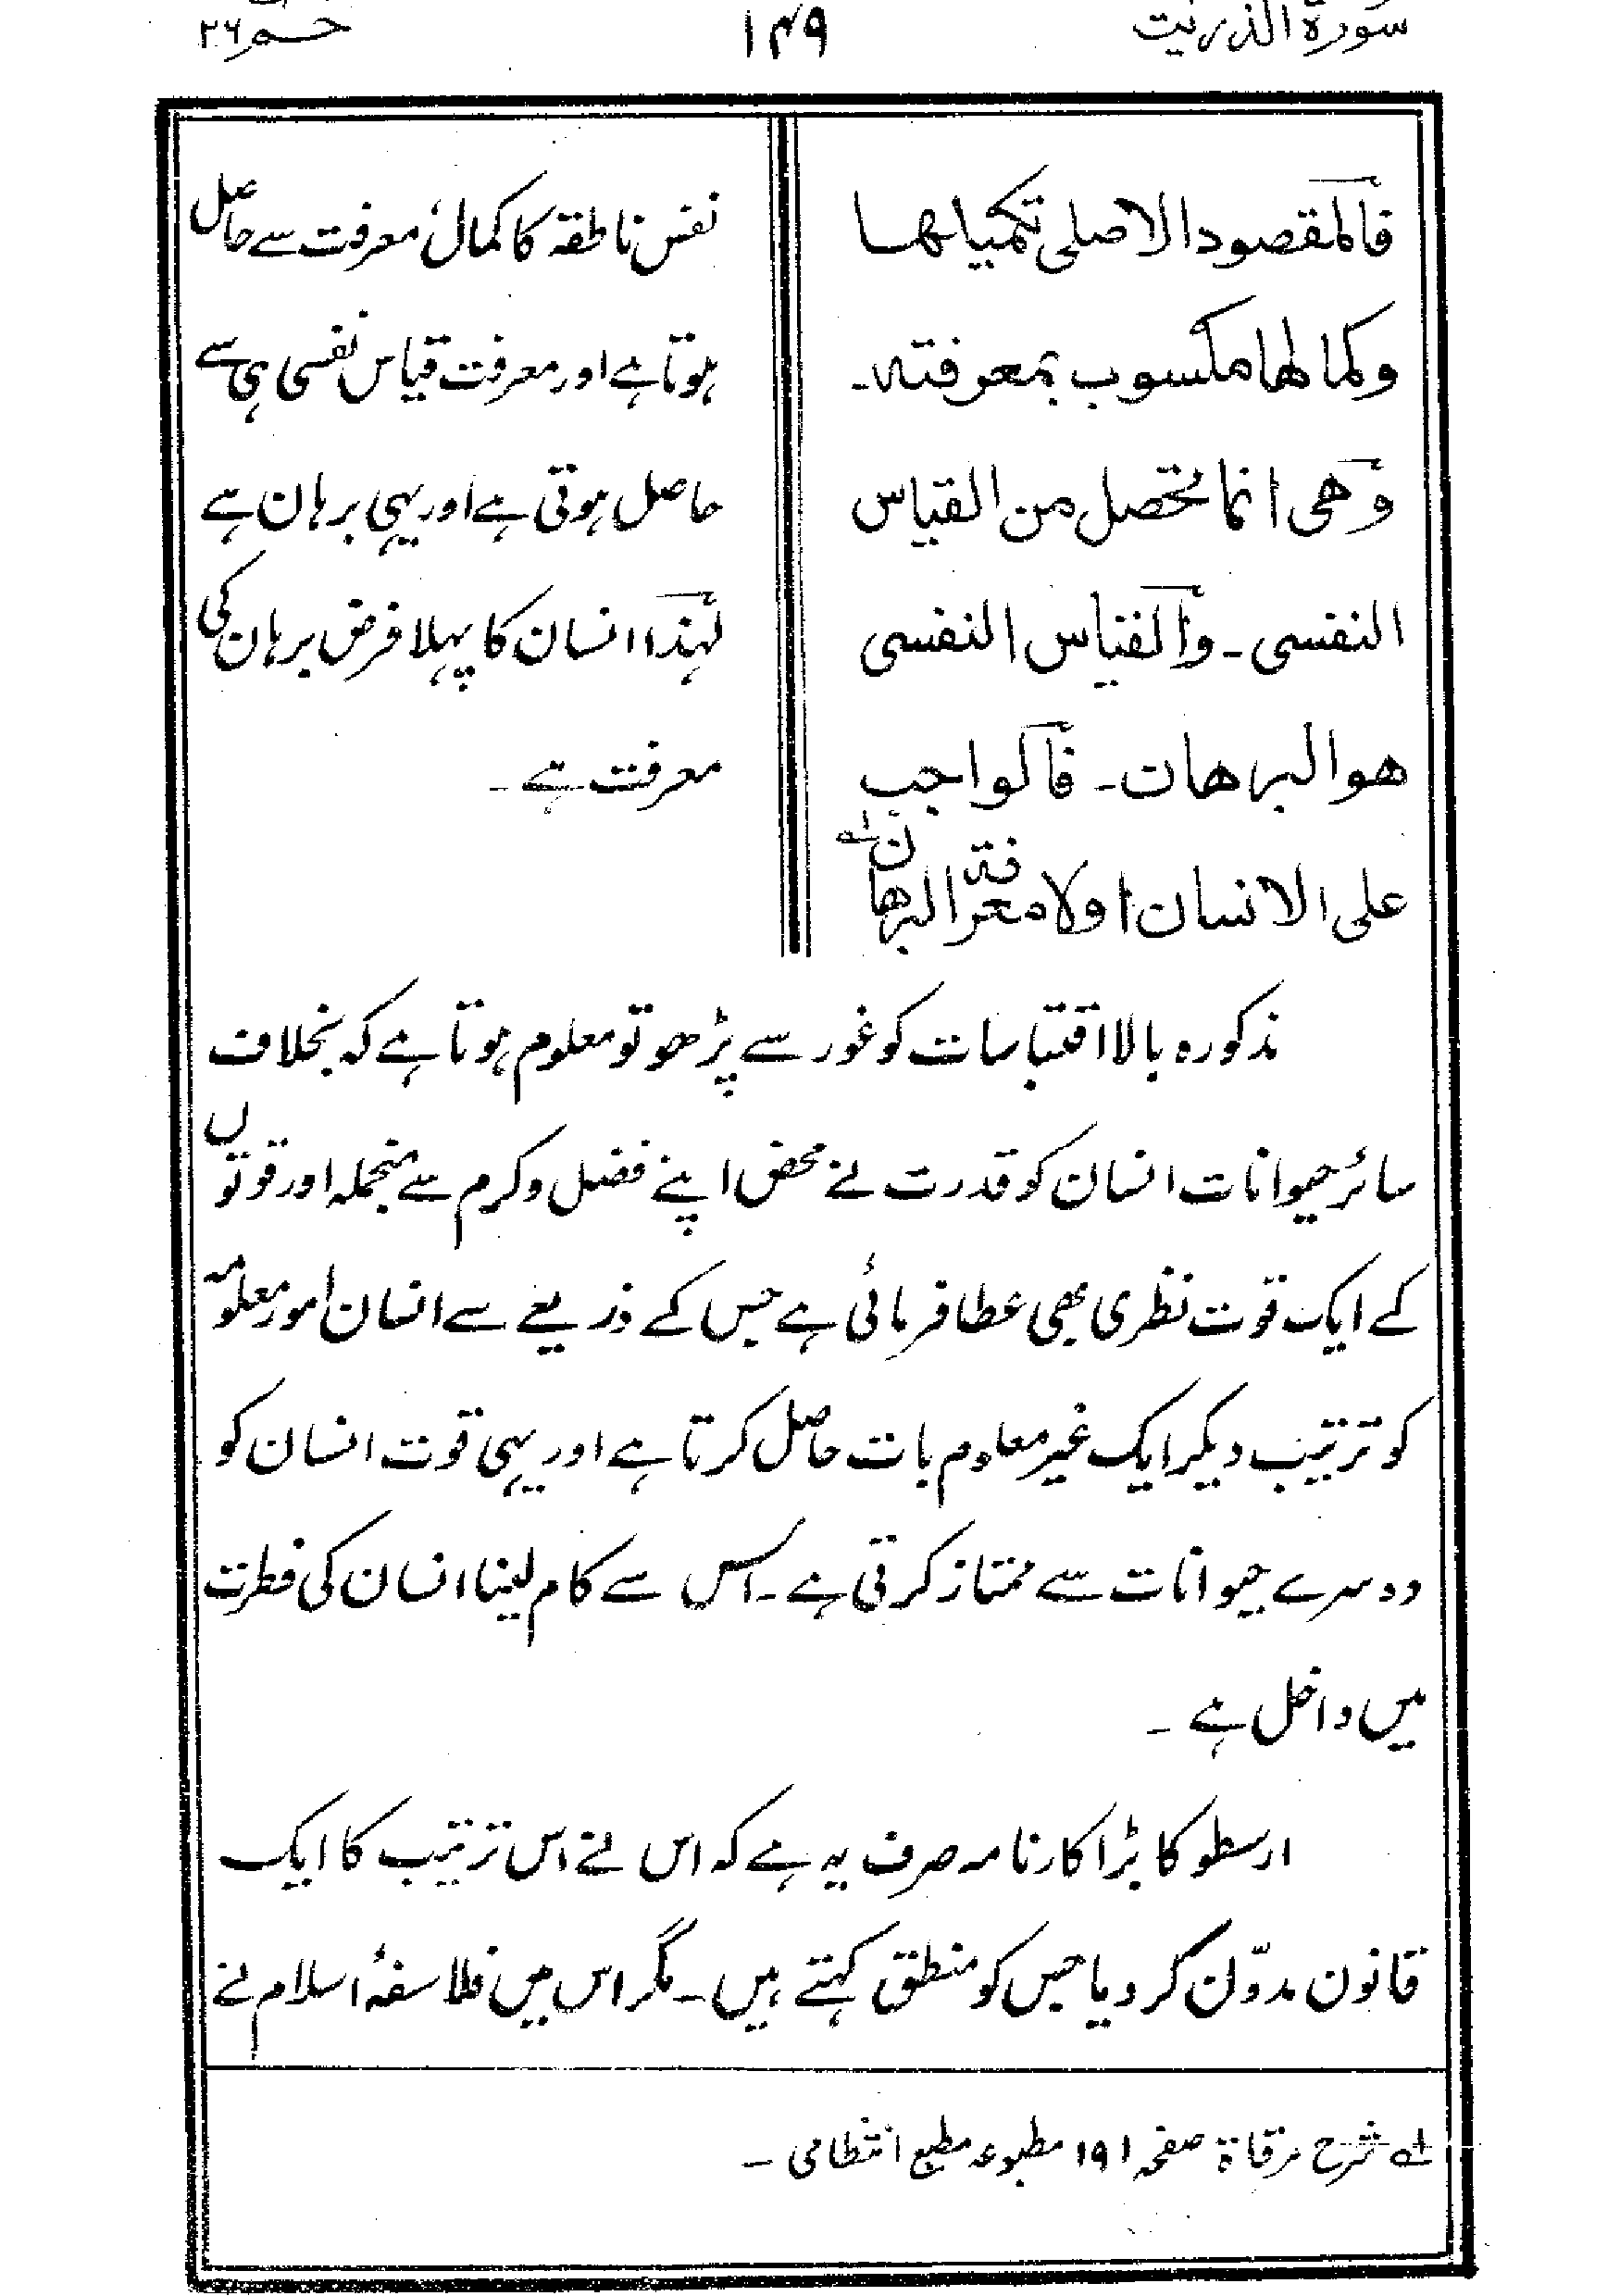 سورة الذریت
۱۴۹
حم ۲۶
فالمقصود الاصلی تکمیلها
وکمالها مکسوب بمعرفته۔
وهی انما تحصل من القیاس
النفسی ۔ والقیاس النفسی
هو البرهان ۔ فالواجب
علی الانسان اولا معرفته البرهان لہ
نفس ناطقہ کا کمال، معرفت سے حاصل
ہوتا ہے اور معرفت قیاس نفسی ہی سے
حاصل ہوتی ہے اور یہی برہان ہے
لہٰذا انسان کا پہلا فرض برہان کی
معرفت ہے ۔
مذکورہ بالا اقتباسات کو غور سے پڑھو تو معلوم ہوتا ہے کہ بخلاف
سائر حیوانات انسان کو قدرت نے محض اپنے فضل و کرم سے منجملہ اور قوتوں
کے ایک قوت نظری بھی عطا فرمائی ہے جس کے ذریعے سے انسان امور معلومہ
کو ترتیب دیکر ایک غیر معلوم بات حاصل کرتا ہے اور یہی قوت انسان کو
دوسرے حیوانات سے ممتاز کرتی ہے ۔ اس سے کام لینا انسان کی فطرت
میں داخل ہے ۔
ارسطو کا بڑا کارنامہ صرف یہ ہے کہ اس نے اس ترتیب کا ایک
قانون مدوّن کر دیا جس کو منطق کہتے ہیں ۔ مگر اس میں فلاسفۂ اسلام نے
لہ شرح مرقاة صفحہ ۱۹۱ مطبوعہ مطبع انتظامی ۔